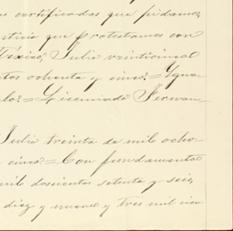 os certificados que pidamos
justicia que protestamos con
Julio veinticinco
tos ochenta y cinco = Igna
lo = Licenciado Fernan
Julio treinta de mil ocho
cinco = Con fundamento
mil doscientos setenta y seis,
diez y nueve y tres mil cien